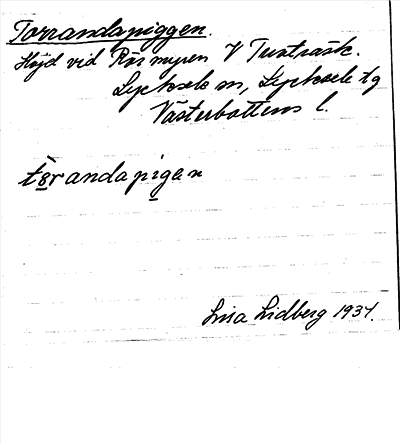 Torrandapiggen.
Höjd vid Rismyren V Tuvträsk.
Lycksele sn, Lycksele tg
Västerbottens l.
tòrandapigen
Lisa Lidberg 1934.